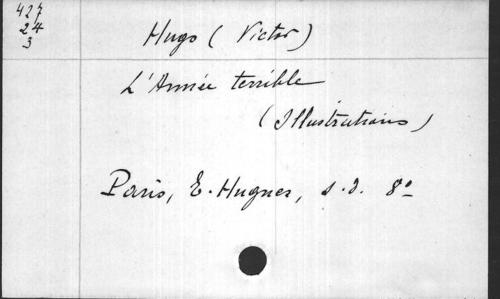 427
24
3
Hugo (Victor)
L'Année terrible
(Illustrations)
Paris, E. Hugues, s.d. 8º